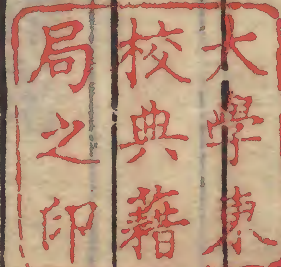 大學東
校典藉
局之印